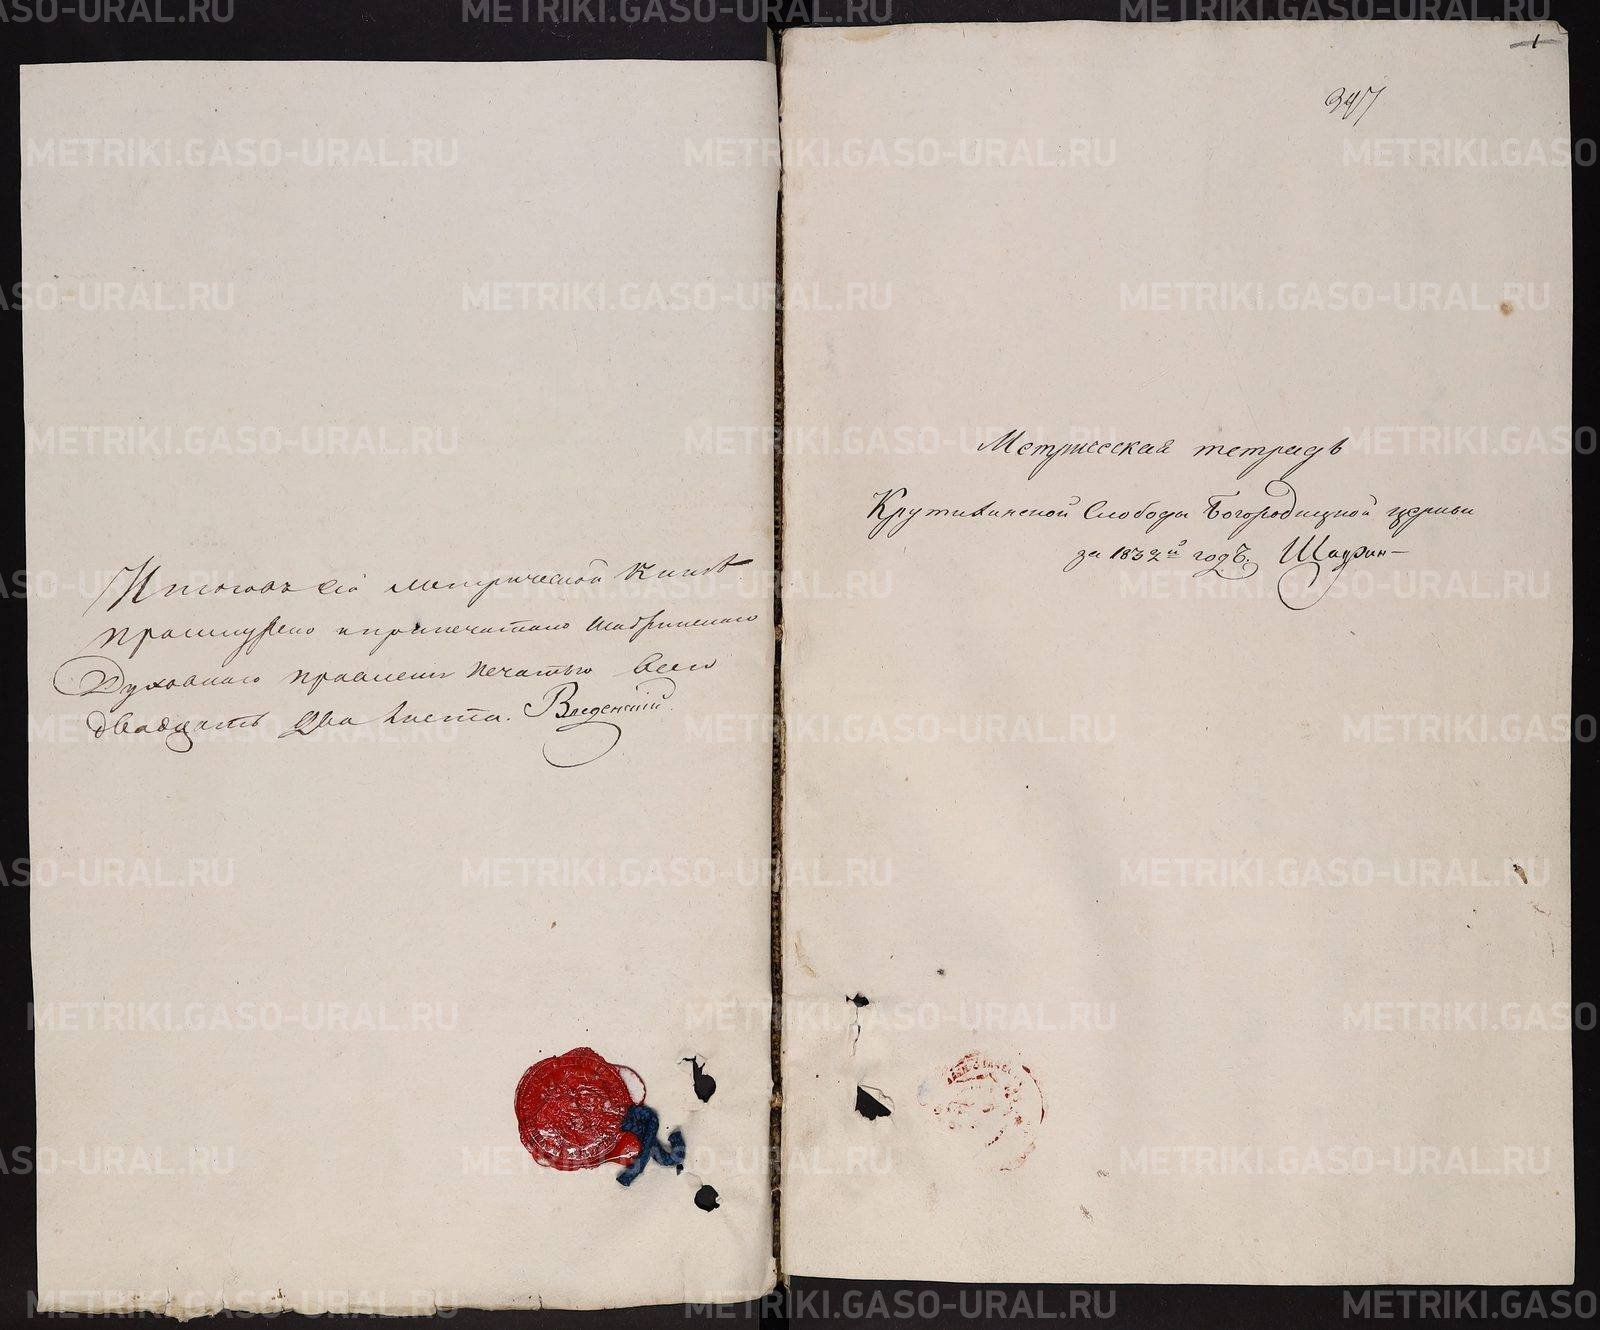 Итого въ сей метрической книге
прошнурено и припечатано Шадринскаго
Духовнаго правления печатью всего
двадцать два листа. Введенский.
1
347
Метрическая тетрадь
Крутихинской Слободы Богородицкой церкви
за 1832й годъ. Шадрин-
METRIKI.GASO-URAL.RU